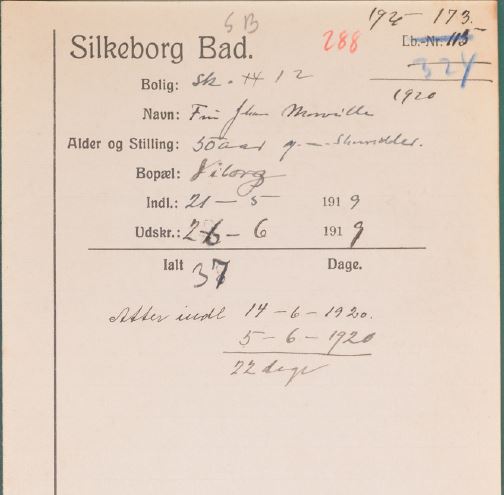 192 - 173.
S B
Silkeborg Bad.
288
Lb.-Nr. 115
324
1920
Bolig: Sk. H 12
Navn: Fru Morville
Alder og Stilling: 50 aar g. Skovridder.
Bopæl: Viborg
Indl.: 21 - 5 1919
Udskr.: 26 - 6 1919
Ialt 37 Dage.
Atter indl 14 - 6 - 1920.
5 - 6 - 1920
22 dage